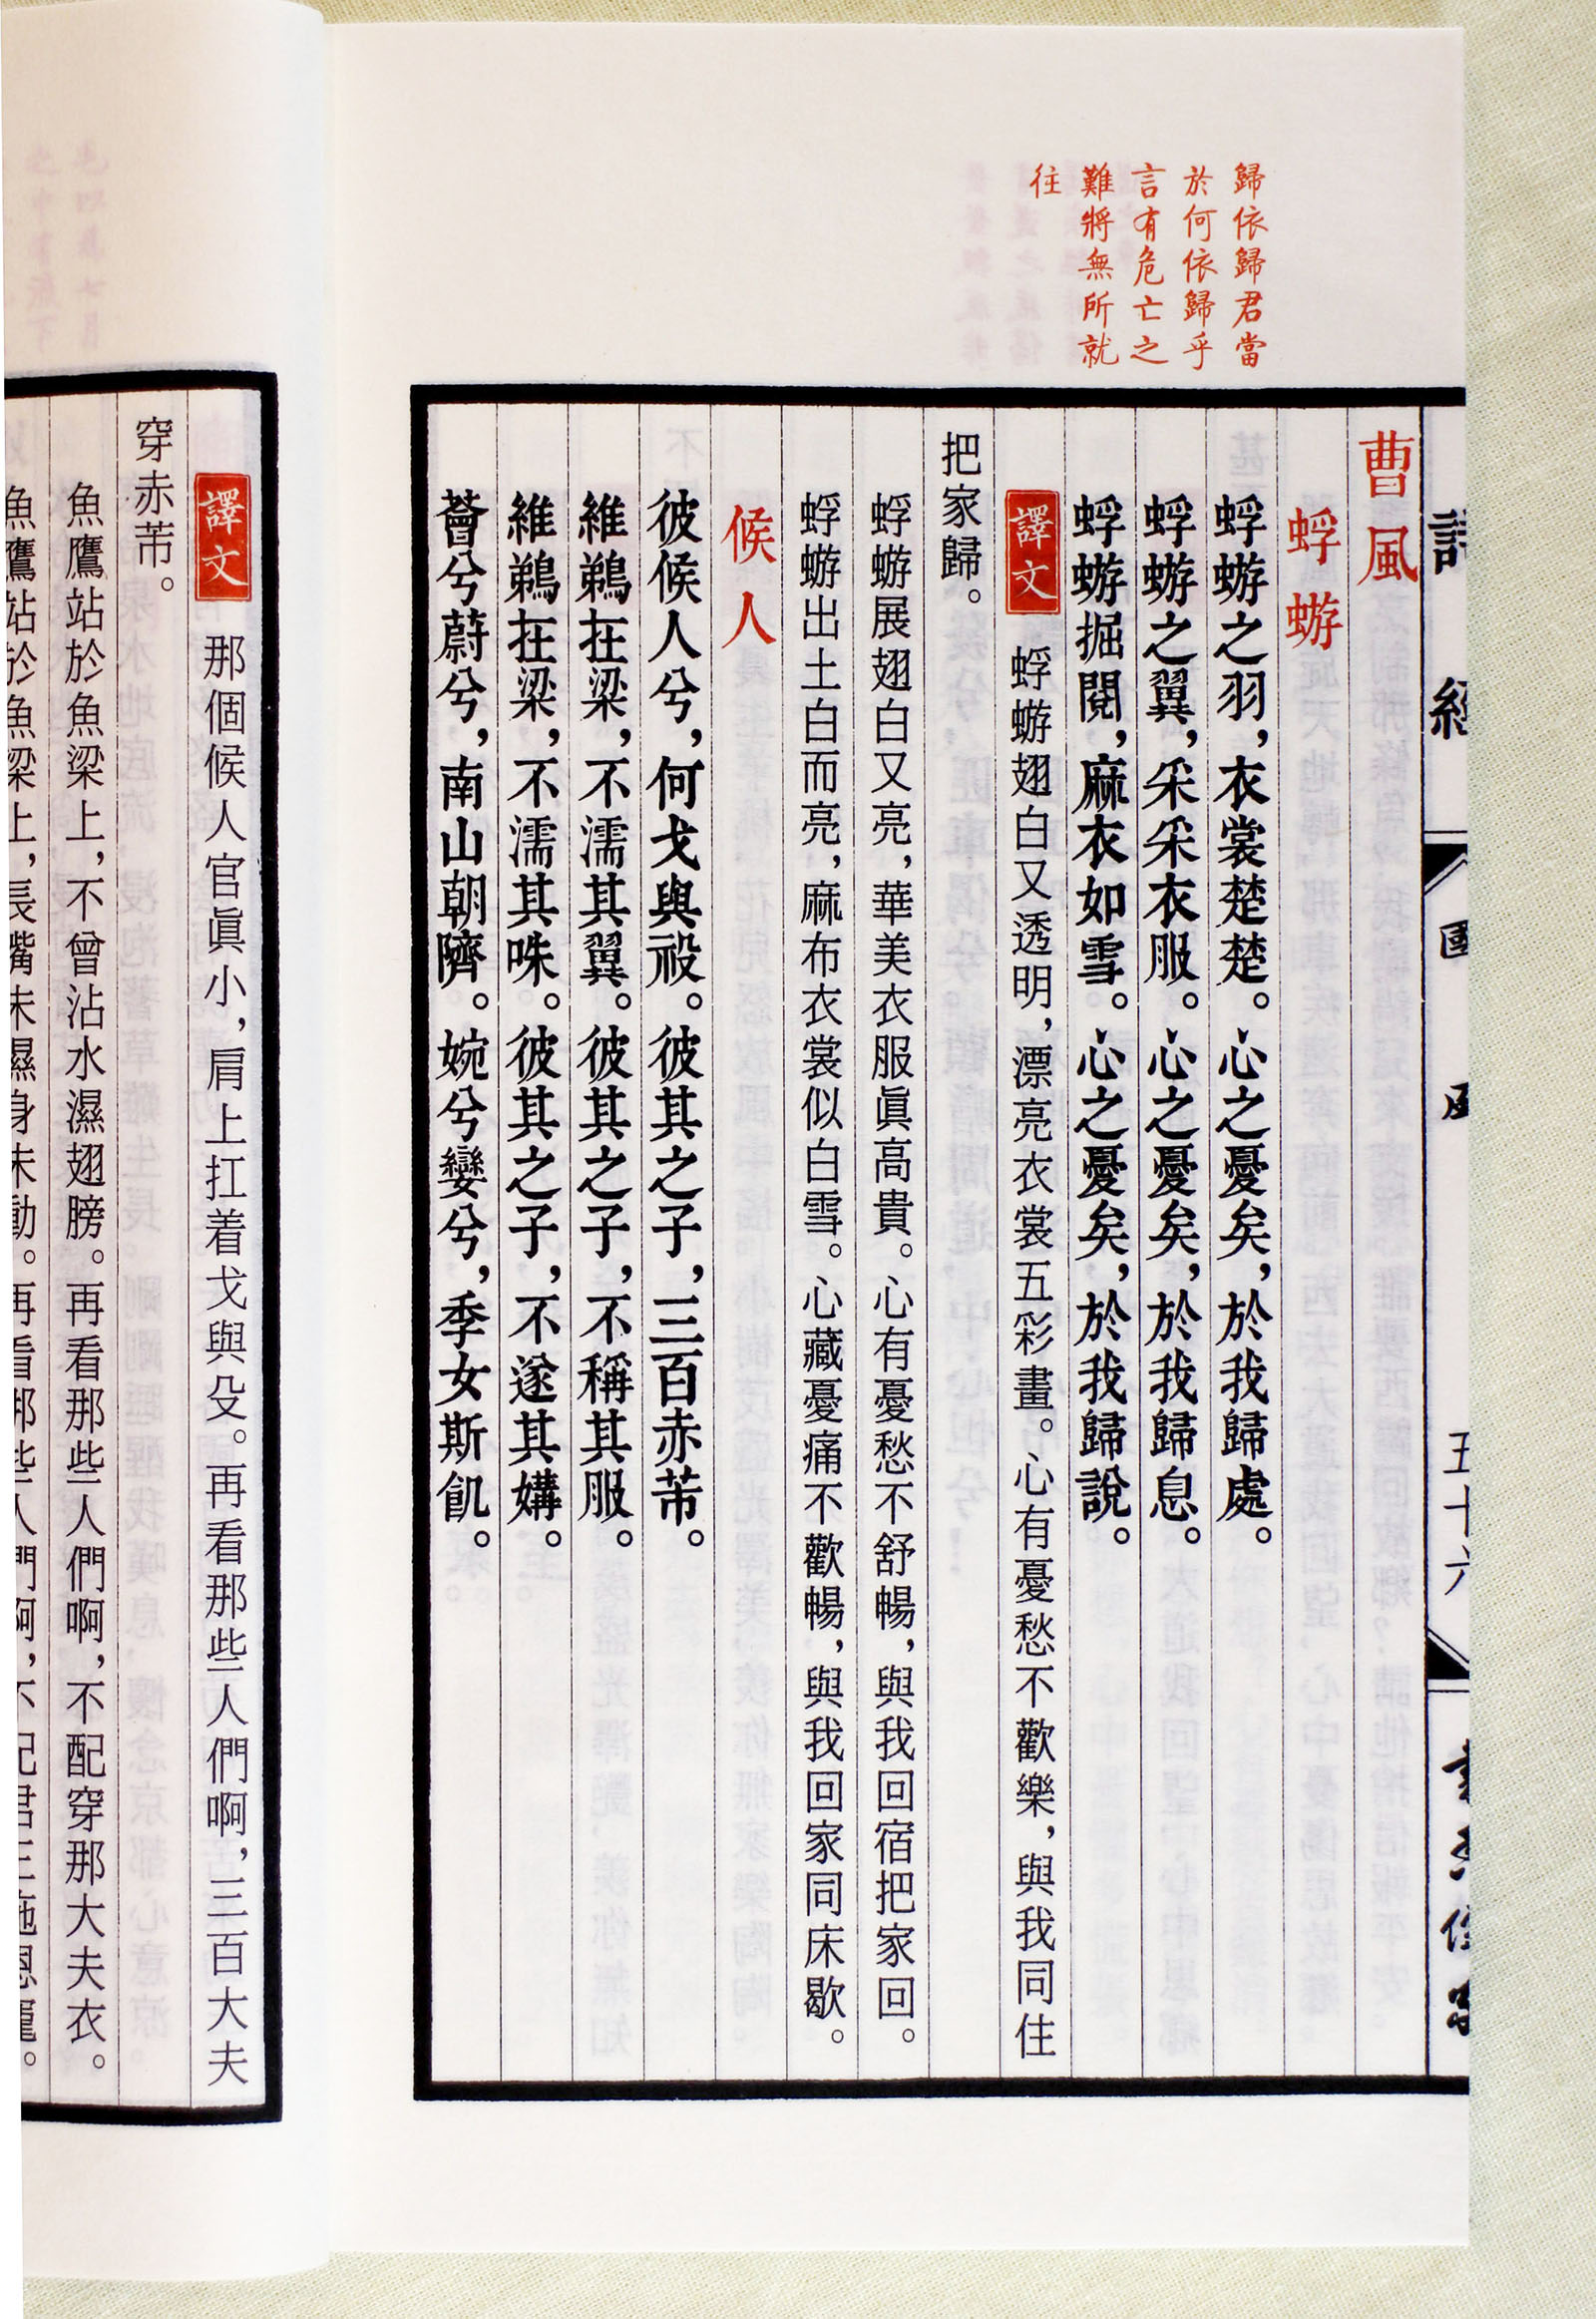 歸依歸君當
於何依歸乎
言有危亡之
難將無所就
往
詩經
國風
五十六
曹風
蜉蝣
蜉蝣之羽，衣裳楚楚。心之憂矣，於我歸處。
蜉蝣之翼，采采衣服。心之憂矣，於我歸息。
蜉蝣掘閱，麻衣如雪。心之憂矣，於我歸說。
譯文 蜉蝣翅白又透明，漂亮衣裳五彩畫。心有憂愁不歡樂，與我同住
把家歸。
蜉蝣展翅白又亮，華美衣服眞高貴。心有憂愁不舒暢，與我回宿把家回。
蜉蝣出土白而亮，麻布衣裳似白雪。心藏憂痛不歡暢，與我回家同床歇。
候人
彼候人兮，何戈與祋。彼其之子，三百赤芾。
維鵜在梁，不濡其翼。彼其之子，不稱其服。
維鵜在梁，不濡其咮。彼其之子，不遂其媾。
薈兮蔚兮，南山朝隮。婉兮孌兮，季女斯飢。
譯文 那個候人官眞小，肩上扛着戈與殳。再看那些人們啊，三百大夫
穿赤芾。
魚鷹站於魚梁上，不曾沾水濕翅膀。再看那些人們啊，不配穿那大夫衣。
魚鷹站於魚梁上，長嘴未濕身未動。再看那些人們啊，不配君王施恩寵。